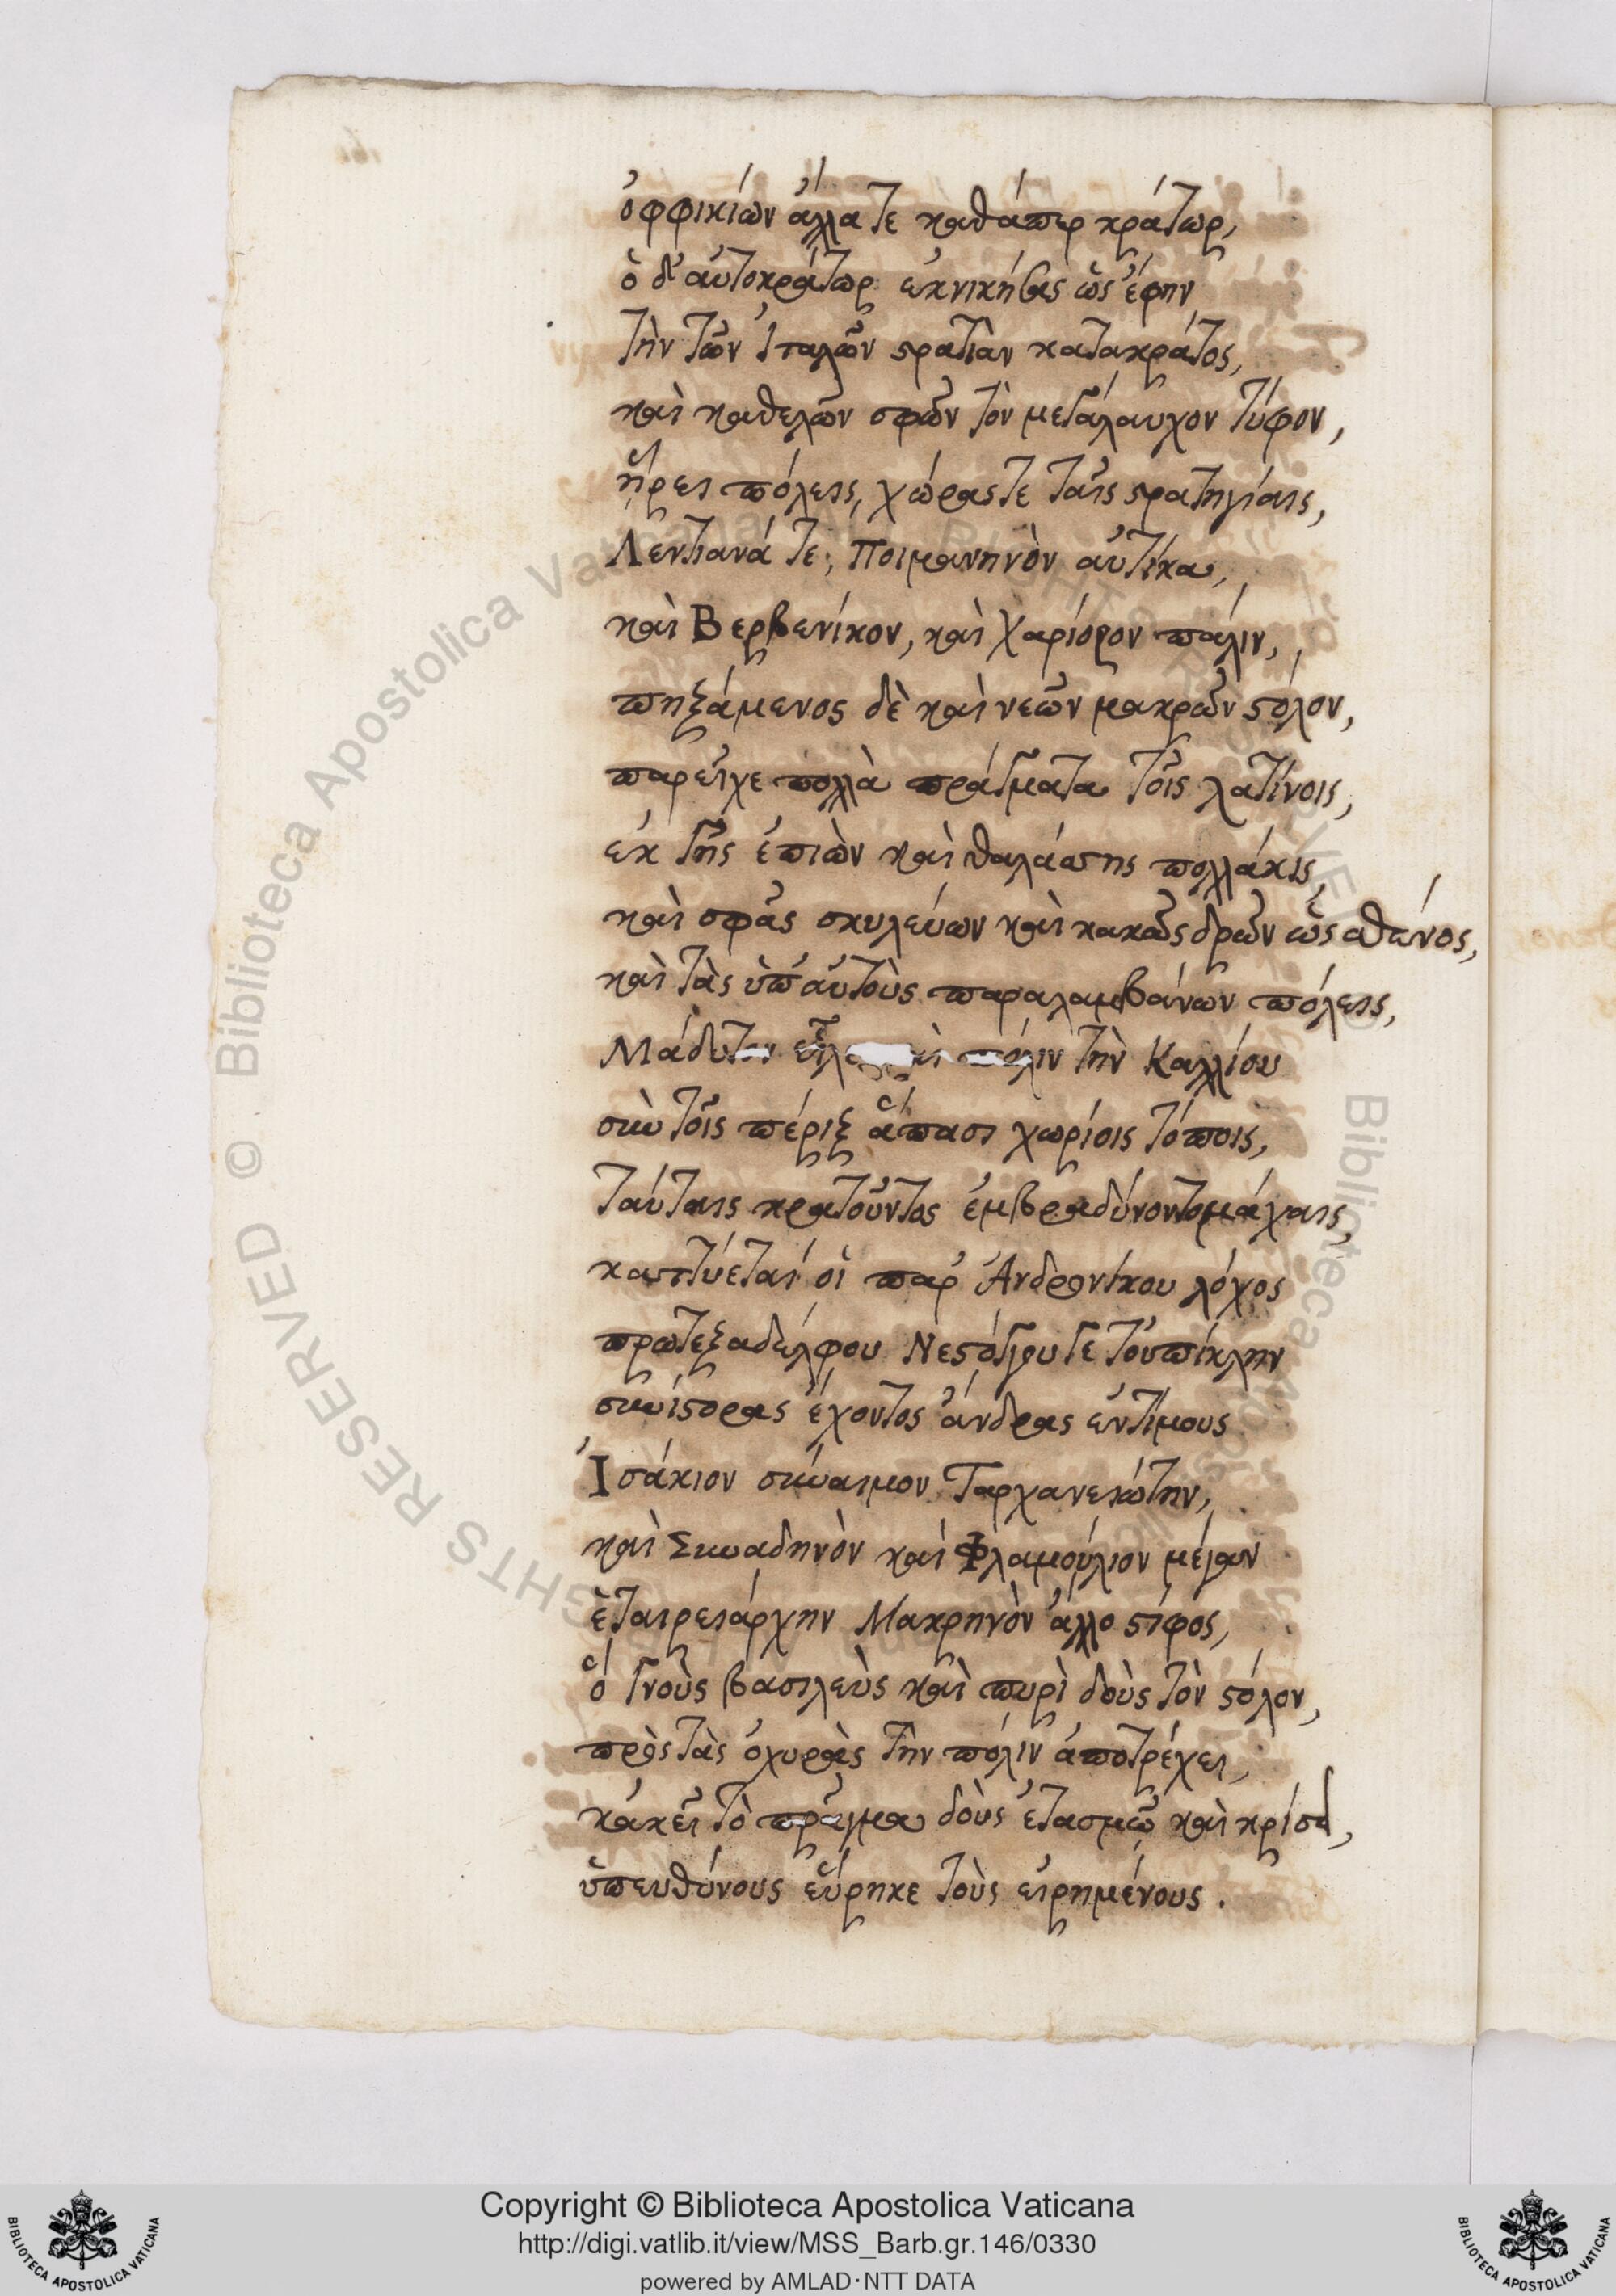 ὀφφικίων ἄλλα τε καθάπερ κράτωρ,
ὁ δ' αὐτοκράτωρ ἐκνικήσας ὡς ἔφην
τὴν τῶν Ἰταλῶν στρατιὰν κατακράτος,
καὶ καθελὼν σφῶν τὸν μεγάλαυχον τύφον,
ᾕρει πόλεις, χώρας τε ταῖς στρατηγίαις,
Λεντιανά τε, Ποιμανηνὸν αὐτίκα,
καὶ Βερβενίκον, καὶ Χαρίορον πάλιν,
πηξάμενος δὲ καὶ νεῶν μακρῶν στόλον,
παρεῖχε πολλὰ πράγματα τοῖς λατίνοις,
ἐκ γῆς ἐπιὼν καὶ θαλάσσης πολλάκις
καὶ σφᾶς σκυλεύων καὶ κακῶς δρῶν ὡς σθένος,
καὶ τὰς ὑπ' αὐτοὺς παραλαμβάνων πόλεις,
Μάδυτον εἷλε καὶ πόλιν τὴν Καλλίου
σὺν τοῖς πέριξ ἅπασι χωρίοις τόποις,
ταύταις κρατοῦντος ἐμβραδύνοντο μάχαις
καττύεταί οἱ παρ' Ἀνδρονίκου λόχος
πρωτεξαδέλφου Νεστόγγου γε τοὐπίκλην
συνίστορας ἔχοντος ἄνδρας ἐντίμους
Ἰσάκιον σύναιμον Ταρχανειώτην,
καὶ Συναδηνὸν καὶ Φλαμούλιον μέγαν
ἑταιρειάρχην Μακρηνὸν ἄλλο στίφος,
ὃ γνοὺς βασιλεὺς καὶ πυρὶ δοὺς τὸν στόλον,
πρὸς τὰς ὀχυρὰς τὴν πόλιν ἀποτρέχει,
κἀκεῖ τὸ πρᾶγμα δοὺς ἐτασμῷ καὶ κρίσει,
ὑπευθύνους εὕρηκε τοὺς εἰρημένους.
Copyright © Biblioteca Apostolica Vaticana
http://digi.vatlib.it/view/MSS_Barb.gr.146/0330
powered by AMLAD·NTT DATA